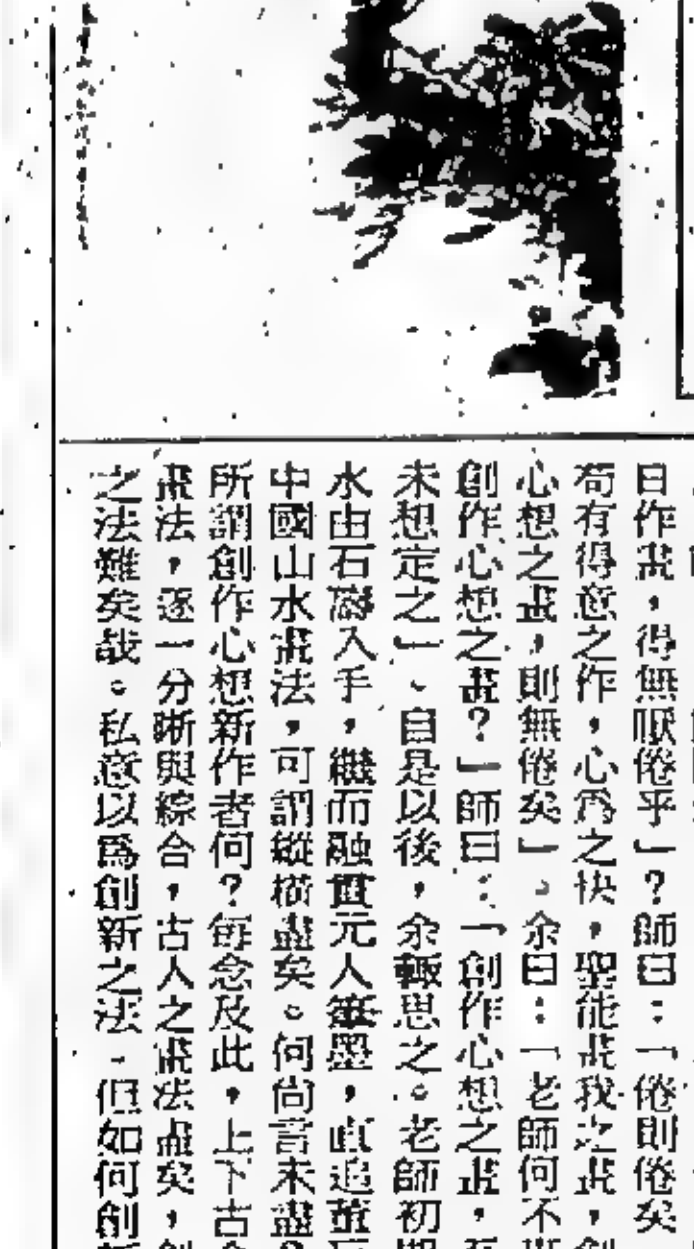 日作畫，得無厭倦乎」？師曰：「倦則倦矣
苟有得意之作，心為之快，聖能畫我之畫，創
心想之畫，則無倦矣」。余曰：「老師何不
創作心想之畫？」師曰：「創作心想之畫，
未想定之」、自是以後，余輒思之。老師初
水由石濤入手，繼而融貫元人筆墨，直追董
中國山水畫法，可謂縱橫盡矣。何尚言未盡？
所謂創作心想新作者何？每念及此，上下古
畫法，逐一分晰與綜合，古人之畫法盡矣，創
之法難矣哉。私意以爲創新之法，但如何創新